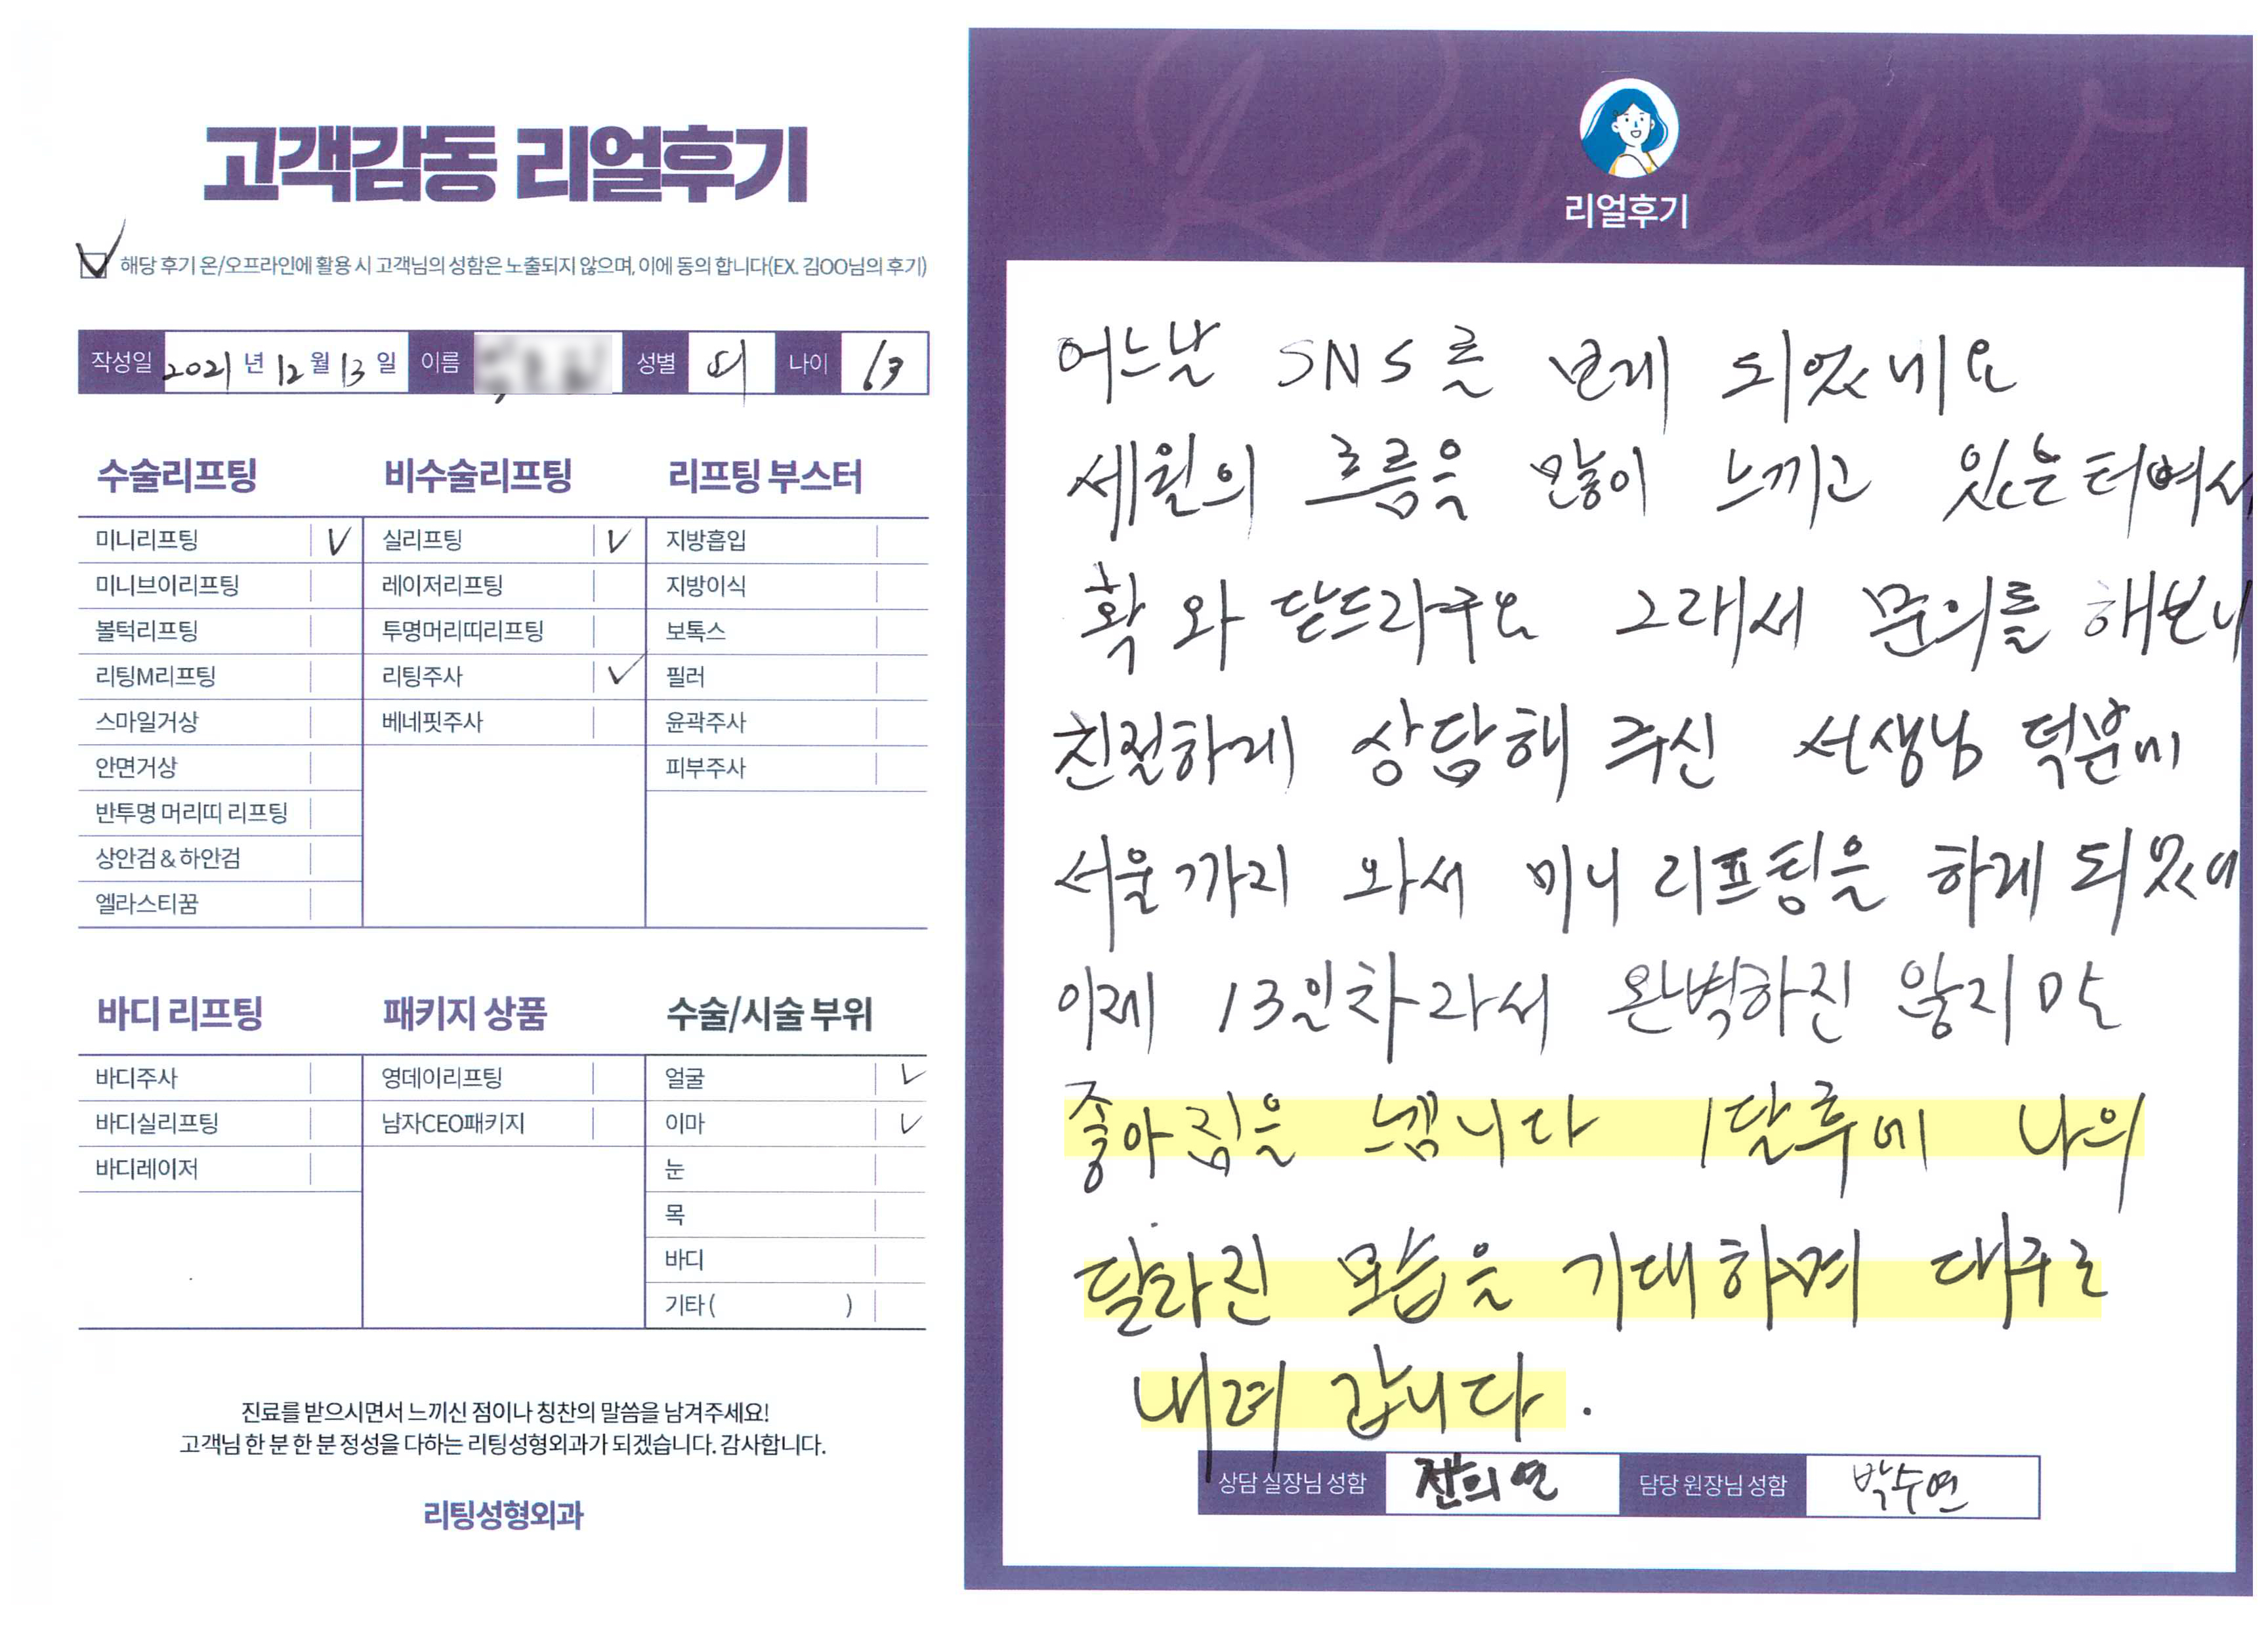 고객감동 리얼후기
해당 후기 온/오프라인에 활용 시 고객님의 성함은 노출되지 않으며, 이에 동의 합니다(EX. 김OO님의 후기)
작성일 2021 년 12 월 13 일 이름 성별 여 나이 63
수술리프팅
미니리프팅 V
미니브이리프팅
볼턱리프팅
리팅M리프팅
스마일거상
안면거상
반투명 머리띠 리프팅
상안검 & 하안검
엘라스티꿈
비수술리프팅
실리프팅 V
레이저리프팅
투명머리띠리프팅
리팅주사 V
베네핏주사
리프팅 부스터
지방흡입
지방이식
보톡스
필러
윤곽주사
피부주사
바디 리프팅
바디주사
바디실리프팅
바디레이저
패키지 상품
영데이리프팅
남자CEO패키지
수술/시술 부위
얼굴 V
이마 V
눈
목
바디
기타 ( )
진료를 받으시면서 느끼신 점이나 칭찬의 말씀을 남겨주세요!
고객님 한 분 한 분 정성을 다하는 리팅성형외과가 되겠습니다. 감사합니다.
리팅성형외과
Review
리얼후기
어느날 SNS를 보게 되었네요
세월의 흐름을 많이 느끼고 있는터여서
확 와 닫드라구요 그래서 문의를 해보니
친절하게 상담해 주신 선생님 덕분에
서울까지 와서 미니리프팅을 하게 되었네
이제 13일차라서 완벽하진 않지만
좋아짐을 느낌니다 1달후에 나의
달라진 모습을 기대하며 대구로
내려 갑니다.
상담 실장님 성함 담당 원장님 성함 박수연